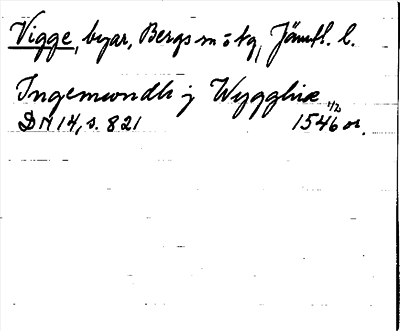 Vigge, byar, Bergs sn o tg, Jämtl. l.
Ingemundh j Wygghiæ
DN 14, s. 821 1546 1/2 or.